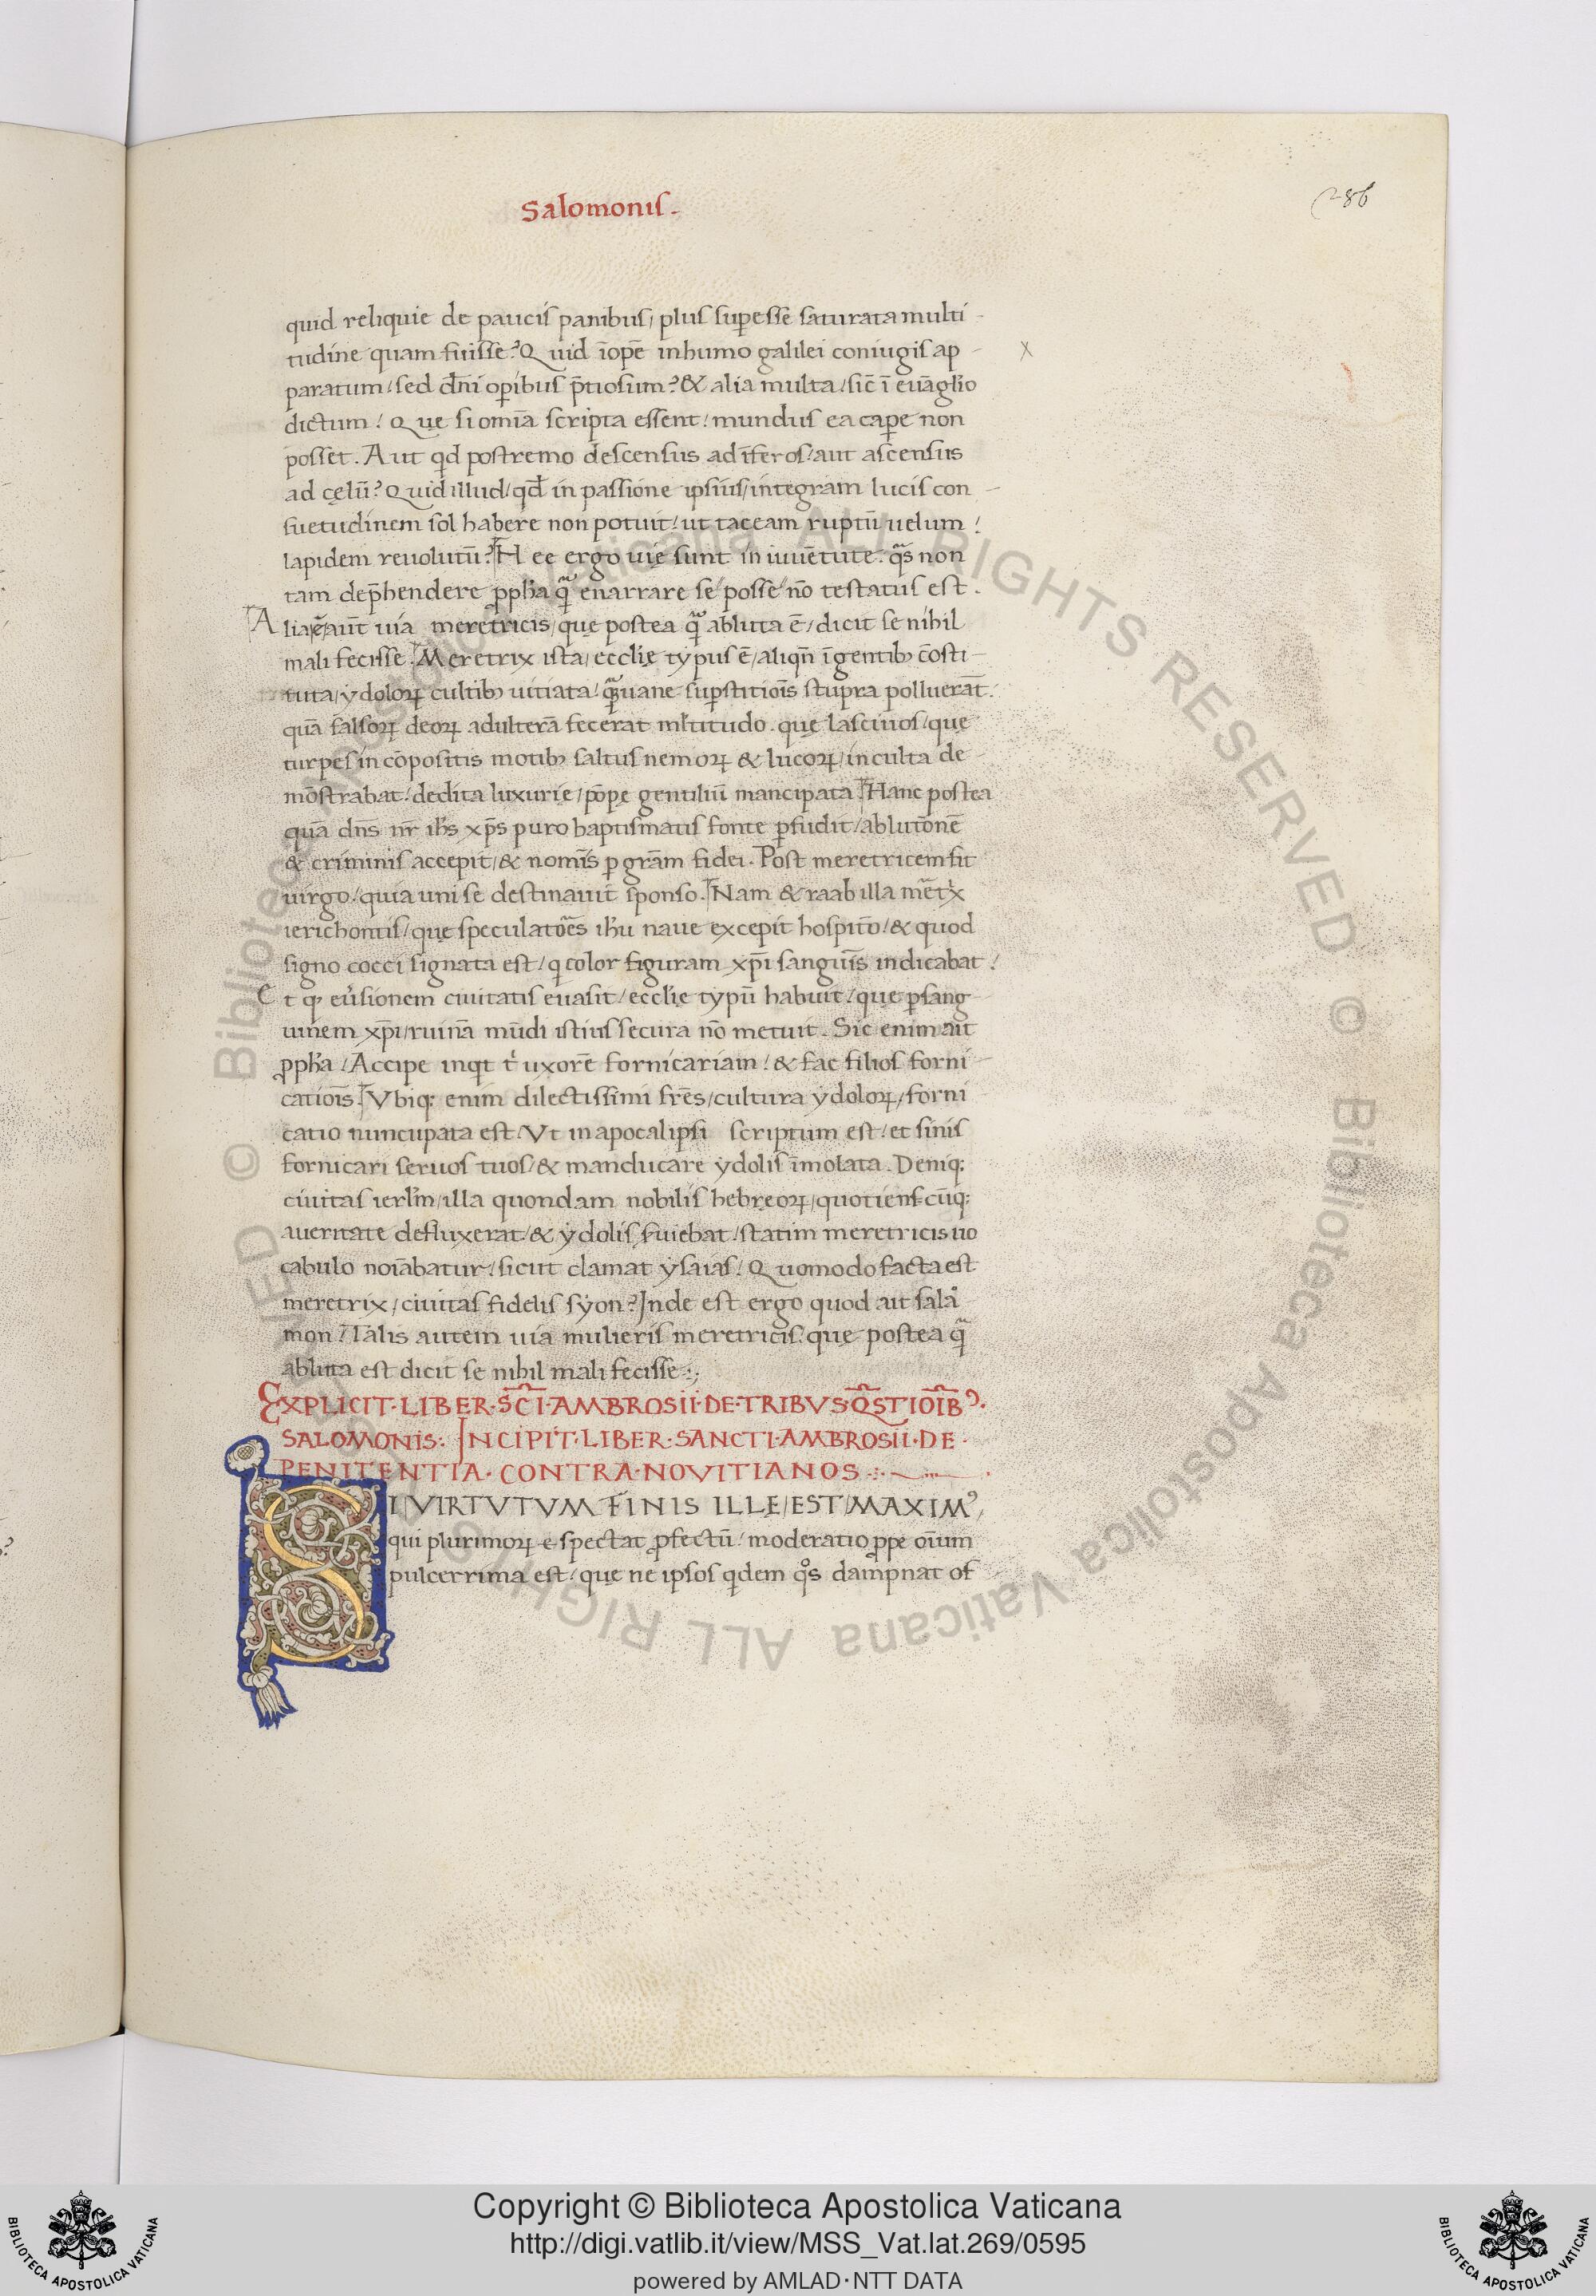 Salomonis.
286
quid reliquie de paucis panibus/ plus supesse saturata multi-
tudine quam fuisse? Quid īopē in humo galilei coniugis ap-
paratum/ sed dn̄i opibus p̄tiosum? & alia multa/ sic̄ ī euāglio
dictum! Que si omīa scripta essent! mundus ea cape non
posset. Aut qd postremo descensus ad īferos/ aut ascensus
ad cęlū? Quid illud/ qd̄ in passione ipsius/ integram lucis con-
suetudinem sol habere non potuit! ut taceam ruptū uelum!
lapidem reuolutū? Hee ergo uię sunt in iuuētute. qͣs non
tam dep̄hendere ꝓpha qͣ enarrare se posse nō testatus est.
Alia ē aūt uia meretricis/ quę postea qͣ abluta ē/ dicit se nihil
mali fecisse. Meretrix ista/ ecclię typus ē/ aliqn̄ ī gentibꝫ cōsti-
tuta/ ydoloꝝ cultibꝫ uitiata! quane supstitioīs stupra polluerāt.
quā falsoꝝ deoꝝ adulterā fecerat mltitudo. quę lasciuos/ quę
turpes in cōpositis motibꝫ saltus nemoꝝ & lucoꝝ/ inculta de-
mōstrabat! dedita luxurie/ pōpę gentiliū mancipata. Hanc postea
quā dn̄s nr̄ ihs̄ xp̄s puro baptismatis fonte ꝑfudit/ ablutōnē
& criminis accepit/ & nomīs ꝑ grām fidei. Post meretricem fit
uirgo/ quia uni se destinauit sponso. Nam & raab illa met̄x
ierichontis/ quę speculatoēs ihū naue excepit hospitō/ & quod
signo cocci signata est/ q color figuram xp̄i sanguīs indicabat!
Et qꝫ eūsionem ciuitatis euasit/ ecclię typū habuit/ quę ꝑ sang-
uinem xp̄i/ ruinā mūdi istius secura nō metuit. Sic enim ait
ꝓpha/ Accipe inqt tͥ uxorē fornicariam! & fac filios forni-
catioīs. Vbiqꝫ enim dilectissimi frēs/ cultura ydoloꝝ/ forni-
catio nuncupata est. Vt in apocalipsi scriptum est! et sinis
fornicari seruos tuos/ & manducare ydolis īmolata. Deniqꝫ
ciuitas ierlm̄/ illa quondam nobilis hebreoꝝ/ quotiens cūqꝫ
a ueritate defluxerat/ & ydolis suiebat/ statim meretricis uo
cabulo noīabatur/ sicut clamat ysaias! Quomodo facta est
meretrix/ ciuitas fidelis syon? Inde est ergo quod ait salo
mon! Talis autem uia mulieris meretricis. quę postea qͣ
abluta est dicit se nihil mali fecisse:;
EXPLICIT·LIBER·SC̄I·AMBROSII·DE·TRIBVS·QSTIOĪBꝰ·
SALOMONIS: INCIPIT·LIBER·SANCTI·AMBROSII·DE·
PENITENTIA·CONTRA·NOVITIANOS
SI VIRTVTVM FINIS ILLE/ EST/ MAXIMꝰ,
qui plurimoꝝ espectat ꝓfectū/ moderatio ꝓpe oīum
pulcerrima est/ quę ne ipsos qdem qͦs dampnat of
Copyright © Biblioteca Apostolica Vaticana
http://digi.vatlib.it/view/MSS_Vat.lat.269/0595
powered by AMLAD·NTT DATA
BIBLIOTECA APOSTOLICA VATICANA
BIBLIOTECA APOSTOLICA VATICANA
© Biblioteca Apostolica Vaticana ALL RIGHTS RESERVED © Biblioteca Apostolica Vaticana ALL RIGHTS RESERVED